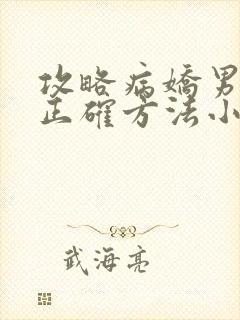 攻略病嬌男
正確方法小
武海亮